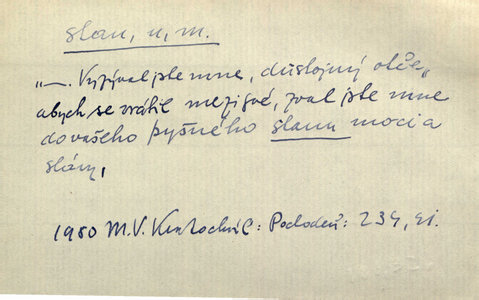 stan, u, m.
"—. Vyzýval jste mne, důstojný otče,
abych se vrátil mezi své, zval jste mne
do vašeho pyšného stanu moci a
slávy,
1950 M.V. Kratochvíl: Pochodeň: 234,